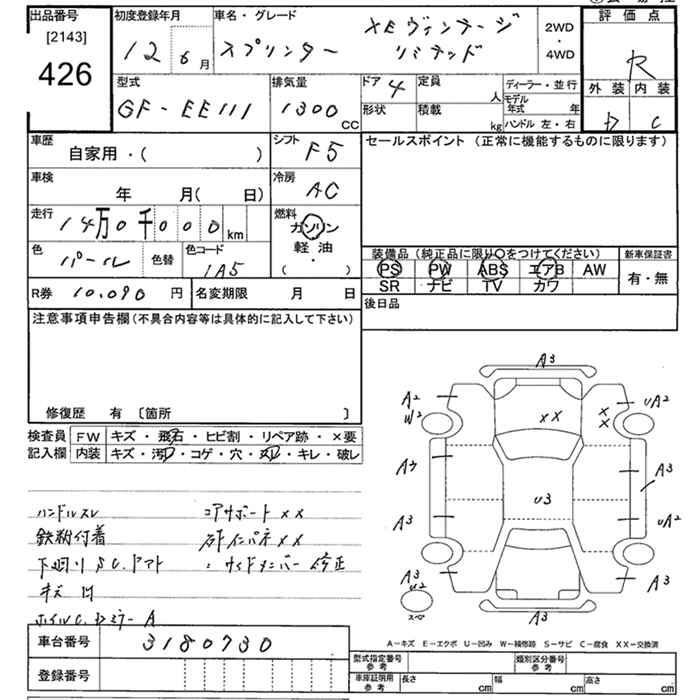 出品番号
[2143]
426
初度登録年月
12年6月
車名・グレード
スプリンター
XEヴィンテージ
リミテッド
2WD
・
4WD
評価点
R
外装 内装
D C
型式
GF-EE111
排気量
1300
CC
ドア
4
定員
人
形状
積載
kg
ディーラー・並行
モデル
年式 年
ハンドル 左・右
車歴
自家用・( )
シフト
F5
セールスポイント (正常に機能するものに限ります)
車検
年 月( 日)
冷房
AC
走行
14万0千000km
燃料
ガソリン
軽油
・
( )
色
パール
色替
色コード
1A5
装備品 (純正品に限り○をつけてください)
新車保証書
PS PW ABS エアB AW
有・無
SR ナビ TV カワ
R券 10,090 円
名変期限 月 日
後日品
注意事項申告欄(不具合内容等は具体的に記入して下さい)
修復歴 有 〔箇所 〕
検査員
記入欄
FW キズ・飛石・ヒビ割・リペア跡・×要
内装 キズ・汚れ・コゲ・穴・スレ・キレ・破レ
ハンドルスレ
コアサポート××
鉄粉付着
右インパネ××
下回りSC.
:サイドメンバー修正
A3
A2
W2
××
×
×
UA2
A3
U3
A3
UA2
A3
U2
スペア
A3
A3
A-キズ E-エクボ U-凹み W-補修跡 S-サビ C-腐食 XX-交換済
車台番号
3180730
登録番号
型式指定番号
参考
類別区分番号
参考
車庫証明用
参考
長さ cm
幅 cm
高さ cm